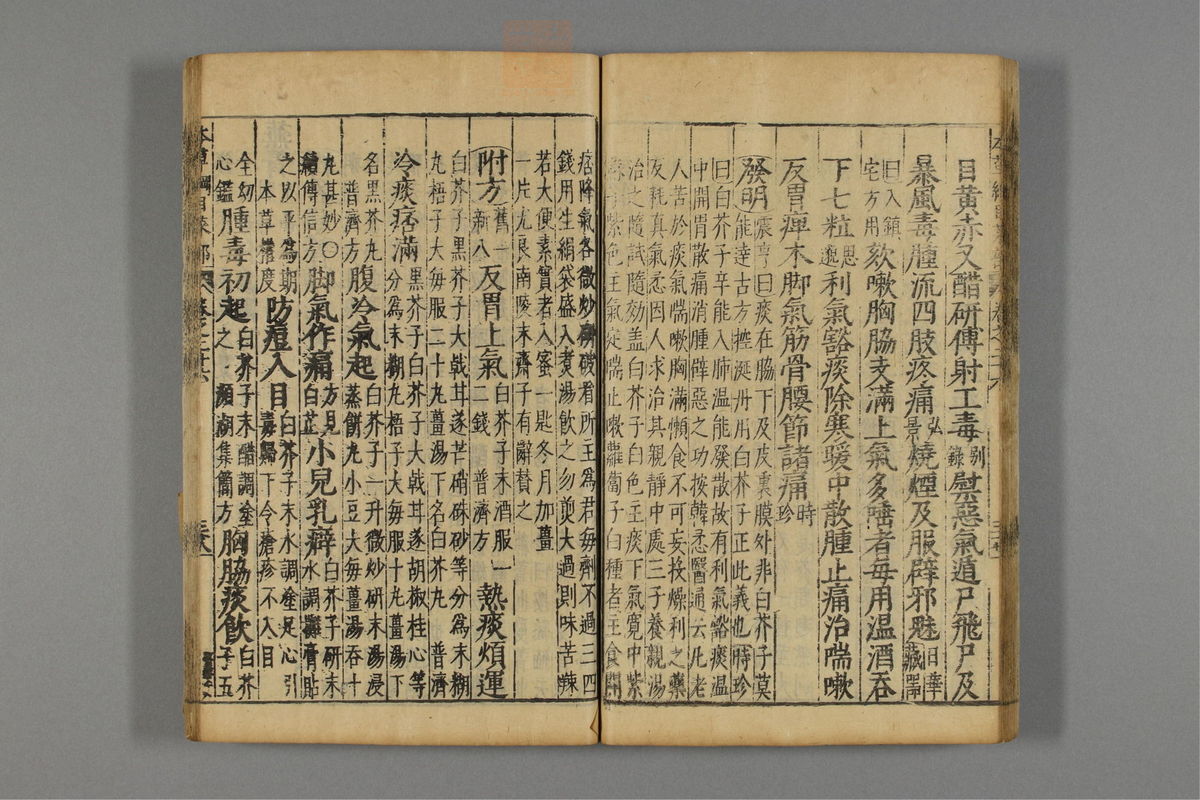 目黃赤又醋研傅射工毒別錄熨惡氣遁尸飛尸及
暴風毒腫流四肢疼痛弘景燒煙及服辟邪魅日華藏器
曰入鎮宅方用欬嗽胸脇支滿上氣多唾者每用温酒吞
下七粒思邈利氣豁痰除寒暖中散腫止痛治喘嗽
反胃痺木脚氣筋骨腰節諸痛時珍
發明震亨曰痰在脇下及皮裏膜外非白芥子莫
能達古方控涎丹用白芥子正此義也時珍
曰白芥子辛能入肺温能發散故有利氣豁痰温
中開胃散痛消腫辟惡之功按韓㦎醫通云凡老
人苦於痰氣喘嗽胸滿懶食不可妄投燥利之藥
反耗真氣㦎因人求治其親靜中處三子養親湯
治之隨試隨効盖白芥子白色主痰下氣寬中紫
蘇子紫色主氣定喘止嗽蘿蔔子白種者主食開
痞降氣各微炒研破看所主為君每劑不過三四
錢用生絹袋盛入煮湯飲之勿煎太過則味苦辣
若大便素實者入蜜一匙冬月加薑
一片尤良南陵末齋子有辭贊之
附方舊一新八反胃上氣白芥子末酒服一二錢普濟方熱痰煩運
白芥子黑芥子大戟甘遂芒硝硃砂等分為末糊
丸梧子大每服二十丸薑湯下名白芥丸普濟
冷痰痞滿黑芥子白芥子大戟甘遂胡椒桂心等
分為末糊丸梧子大每服十丸薑湯下
名黑芥丸普濟方腹冷氣起白芥子一升微炒研末湯浸
蒸餅丸小豆大每薑湯吞十
丸甚妙○續傳信方脚氣作痛方見白芷小兒乳癖白芥子研末
水調攤膏貼
之以平為期本草權度防痘入目白芥子末水調塗足心引
毒歸下令瘡疹不入目
全幼心鑑腫毒初起白芥子末醋調塗之瀕湖集簡方胸脇痰飲白芥
子五